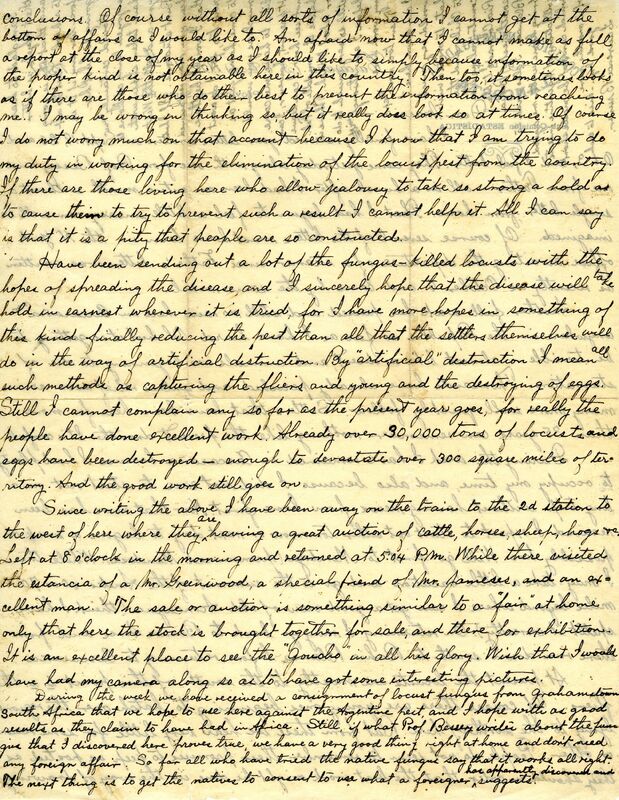 conclusions. Of course without all sorts of information I cannot get at the
bottom of affairs as I would like to. Am afraid now that I cannot make as full
a report at the close of my year as I should like to, simply because information of
the proper kind is not obtainable here in this country. Then too, it sometimes looks
as if there are those who do their best to prevent the information from reaching
me. I may be wrong in thinking so, but it really does look so at times. Of course
I do not worry much on that account because I know that I am trying to do
my duty in working for the elimination of the locust pest from the country.
If there are those living here who allow jealousy to take so strong a hold as
to cause them to try to prevent such a result I cannot help it. All I can say
is that it is a pity that people are so constructed.
Have been sending out a lot of the fungus-killed locusts with the
hopes of spreading the disease and I sincerely hope that the disease will take
hold in earnest wherever it is tried, for I have more hopes in something of
this kind finally reducing the pest than all that the settlers themselves will
do in the way of artificial distruction. By "artificial" destruction I mean all
such methods as capturing the fliers and young and the destroying of eggs.
Still I cannot complain any so far as the present year goes, for really the
people have done excellent work. Already over 30,000 tons of locusts and
eggs have been destroyed — enough to devastate over 300 square miles of ter-
ritory. And the good work still goes on.
Since writing the above I have been away on the train to the 2d station to
the west of here where they are having a great auction of cattle, horses, sheep, hogs &c.
Left at 8 o'clock in the morning and returned at 5:04 P.M. While there visited
the estancia of a Mr. Greenwood, a special friend of Mr. Jameses, and an ex-
cellent man. The sale or auction is something similar to a "fair" at home
only that here the stock is brought together for sale, and there for exhibition.
It is an excellent place to see the "Goucho" in all his glory. Wish that I would
have had my camera along so as to have got some interesting pictures.
During the week we have received a consignment of locust fungus from Grahamstown
South Africa that we hope to use here against the Argentine pest and I hope with as good
results as they claim to have had in Africa. Still, if what Prof Bessey writes about the fun-
gus that I discovered here proves true, we have a very good thing right at home and don't need
any foreign affair. So far all who have tried the native fungus say that it works all right.
The next thing is to get the natives to consent to use what a foreigner has apparently discovered and suggests.